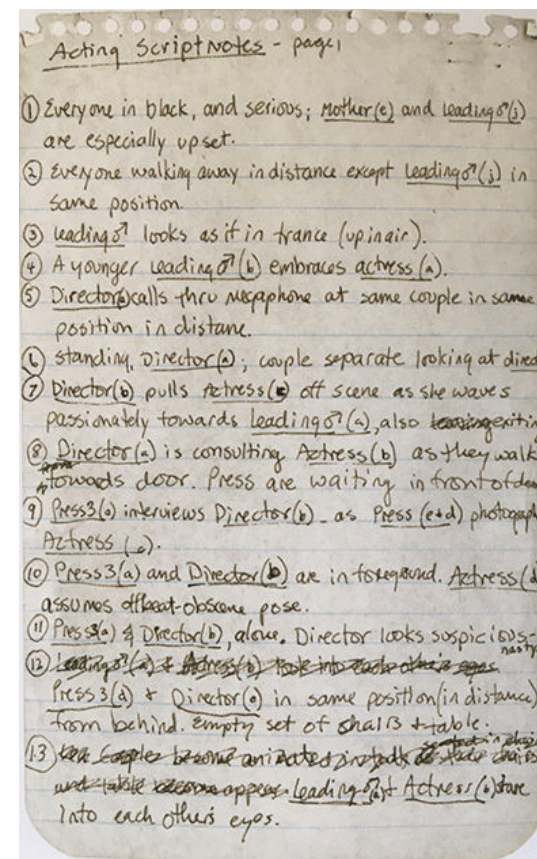 Acting Script Notes - page 1
① Everyone in black, and serious; Mother(e) and Leading♂(j)
are especially upset.
② Everyone walking away in distance except Leading♂(j) in
same position.
③ Leading♂ looks as if in trance (up in air).
④ A younger Leading♂(b) embraces actress(a).
⑤ Director calls thru megaphone at same couple in same
position in distane.
⑥ standing, Director(a); couple separate looking at direc
⑦ Director(b) pulls Actress off scene as she waves
passionately towards Leading♂(a), also exitin
⑧ Director(a) is consulting Actress(b) as they walk
towards door. Press are waiting in front of
⑨ Press3(a) interviews Director(b) as Press (e+d) photograph
Actress
⑩ Press3(a) and Director(b) are in foreground. Actress(d
assumes offbeat-obscene pose.
⑪ Press3(a) & Director(b), alone. Director looks suspicious-
nasty
⑫ Leading♂(a) & Actress(b) look into each other's eyes
Press3(d) & Director(a) in same position (in distance)
from behind. Empty set of chairs + table.
13 Couple become animated instead
and table appear Leading♂ & Actress(b) stare
into each other's eyes.